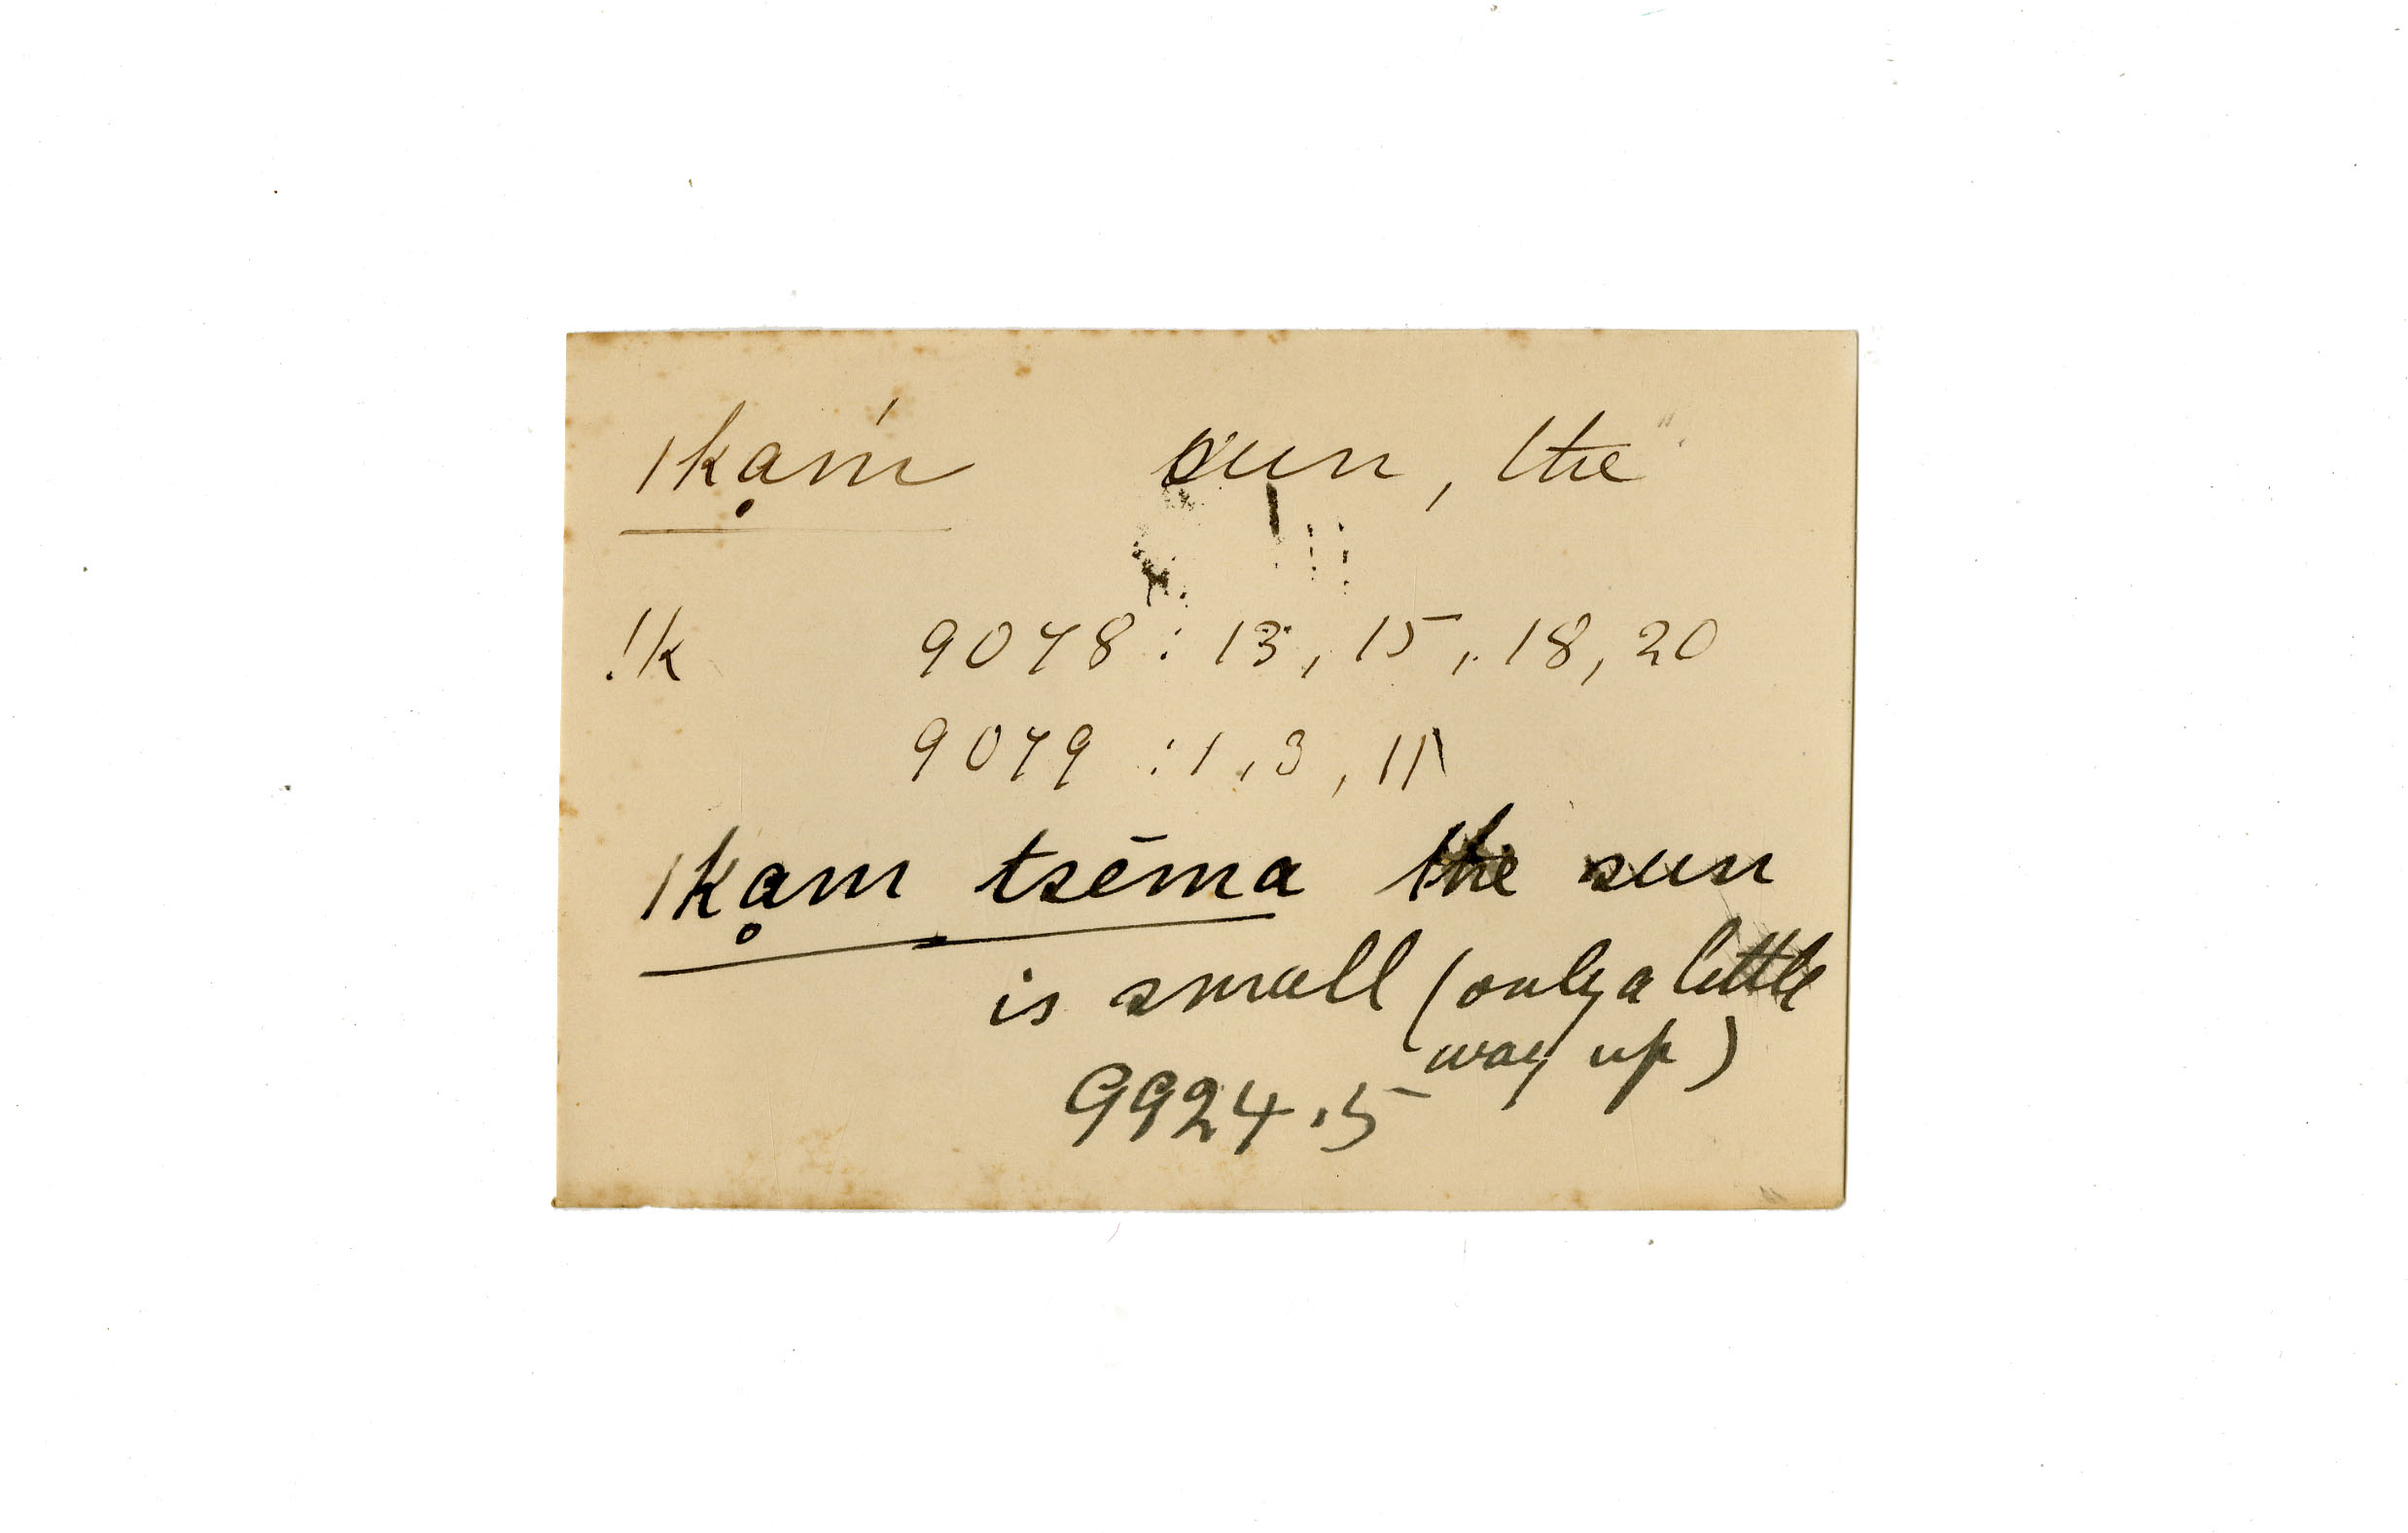 ǀką́m sun, the
!k 9078 : 13, 15, 18, 20
9079 : 1, 3, 11
ǀkạm tsēma the sun
is small (only a little
way up)
9924.5